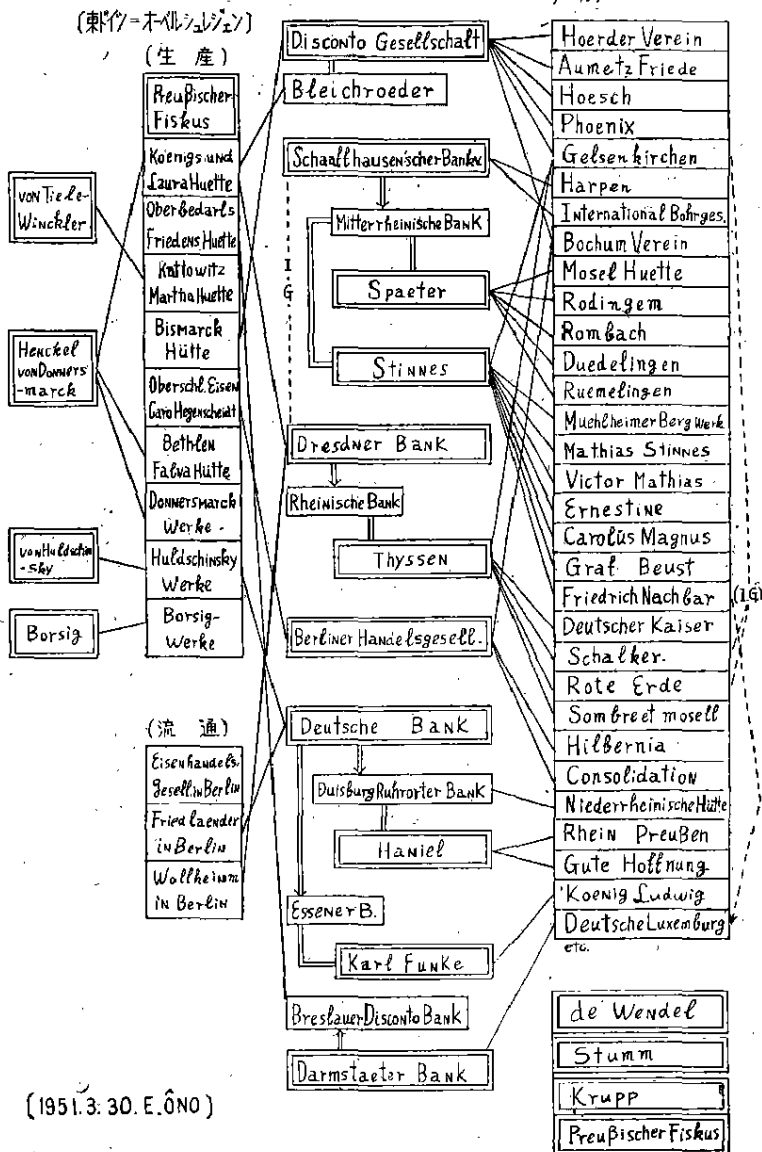 〔東ドイツ=オーベルシュレジェン〕
(生 産)
Preußischer
Fiskus
Koenigs und
Laura Huette
Oberbedarfs
Friedens Huette
Kattowitz
Martha Huette
Bismarck
Hütte
Oberschl. Eisen
Caro Hegenscheidt
Bethlen
Falva Hütte
Donnersmarck
Werke
Huldschinsky
Werke
Borsig-
Werke
von Tiele-
Winckler
Henckel
von Donners
-marck
von Huldschin
-sky
Borsig
(流 通)
Eisenhandels
Gesell.in Berlin
Friedlaender
in Berlin
Wollheimm
in Berlin
Disconto Gesellschaft
Bleichroeder
Schaaffhausen'scher Bankv.
Mitterrheinische Bank
I
G
Spaeter
Stinnes
Dresdner Bank
Rheinische Bank
Thyssen
Berliner Handelsgesell.
Deutsche Bank
Duisburg Ruhrorter Bank
Haniel
Essener B.
Karl Funke
Breslauer Disconto Bank
Darmstaeter Bank
Hoerder Verein
Aumetz Friede
Hoesch
Phoenix
Gelsenkirchen
Harpen
International Bohrges.
Bochum Verein
Mosel Huette
Rodingem
Rombach
Duedelingen
Ruemelingen
Muehlheimer Berg Werk
Mathias Stinnes
Victor Mathias
Ernestine
Carolus Magnus
Graf Beust
Friedrich Nachbar
(I.G)
Deutscher Kaiser
Schalker.
Rote Erde
Sombreet mosell
Hilbernia
Consolidation
Niederrheinische Hütte
Rhein Preußen
Gute Hoffnung
Koenig Ludwig
Deutsche Luxemburg
etc.
de Wendel
Stumm
Krupp
Preußischer Fiskus
〔1951.3.30. E.ÔNO〕